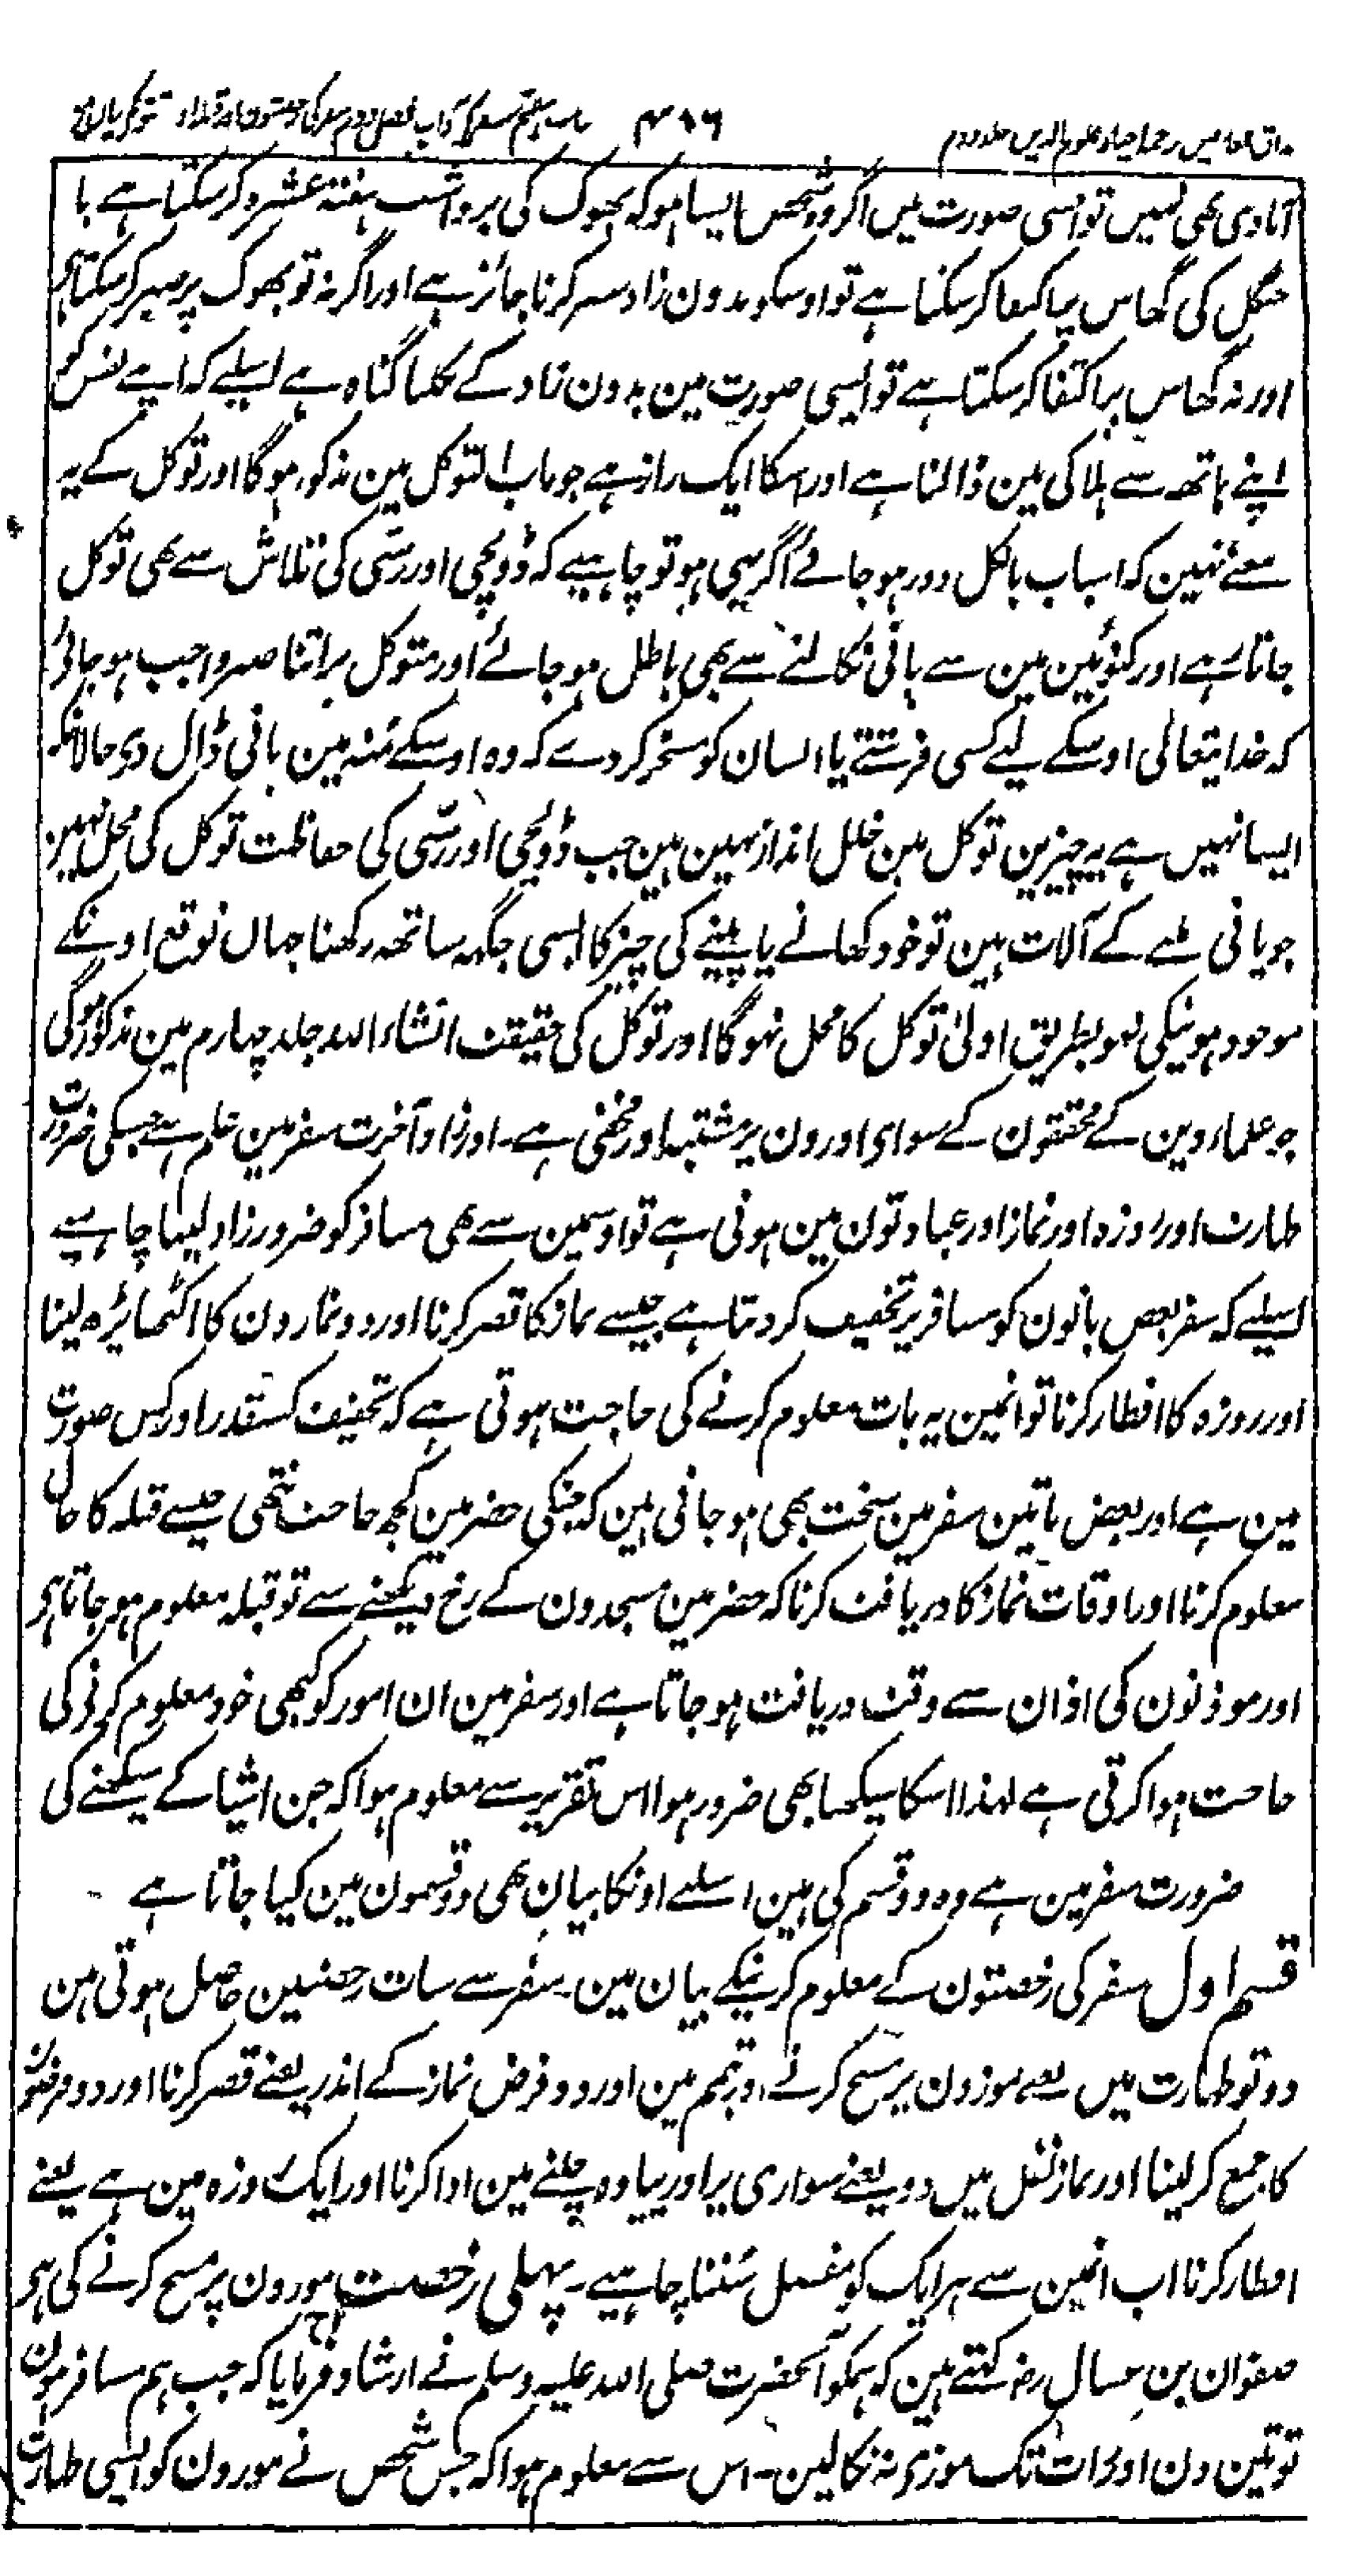 مذاق العارفین ترجمہ احیاء علوم الدین جلد دوم ۴۱۶ باب ہفتم سفر کے آداب فصل دوم سفر کی رخصتوں اور قبلہ
آبادی بھی نہیں تو اسی صورت میں اگر وہ شخص ایسا ہو کہ بھوک کی برداشت ہفتہ عشرہ کر سکتا ہے یا
جنگل کی گھاس پر اکتفا کر سکتا ہے تو اوسکو بدون زاد سفر کرنا جائز ہے اور اگر نہ تو بھوک پر صبر کر سکتا ہی
اور نہ گھاس پر اکتفا کر سکتا ہے تو ایسی صورت مین بدون زاد کے نکلنا گناہ ہے اسلیے کہ اپنے نفس کو
اپنے ہاتھ سے ہلاکی مین ڈالنا ہے اور اسکا ایک راز ہے جو باب التوکل مین مذکور ہوگا اور توکل کے یہ
معنے نہین کہ اسباب بالکل دور ہو جائے اگر یہی ہو تو چاہیے کہ ڈولچی اور رسی کی تلاش سے بھی توکل
جاتا رہے اور کنوئین مین سے پانی نکالنے سے بھی باطل ہو جائے اور متوکل پر اتنا صبر واجب ہو جائے
کہ خدا یتعالی اوسکے لیے کسی فرشتے یا انسان کو مسخر کر دے کہ وہ اوسکے منہ مین پانی ڈال دی حالانکہ
ایسا نہیں ہے یہ چیزین توکل مین خلل انداز نہین ہین جب ڈولچی اور رسی کی حفاظت توکل کی مخل نہین
جو پانی ملنے کے آلات ہین تو خود کھانے یا پینے کی چیز کا ایسی جگہہ ساتھہ رکھنا جہاں توقع اونکے
موجود ہونیکی نہو بطریق اولیٰ توکل کا مخل نہوگا اور توکل کی حقیقت انشاء اللہ جلد چہارم مین مذکور ہوگی
جو علماء دین کے محققون کے سوا ی اورون پر مشتبہ اور مخفی ہے۔ اور زاد آخرت سفر مین علم ہے جسکی ضرورت
طہارت اور روزہ اور نماز اور عبادتون مین ہوتی ہے تو اوسمین سے بھی مسافر کو ضرور زاد لینا چاہیے
اسلیے کہ سفر بعض باتون کو مسافر پر تخفیف کر دیتا ہے جیسے نماز کا قصر کرنا اور دو نمازون کا اکٹھا پڑہ لینا
اور روزہ کا افطار کرنا تو انمین یہ بات معلوم کرنے کی حاجت ہوتی ہے کہ تخفیف کسقدر اور کس صورت
مین ہے اور بعض باتین سفر مین سخت بھی ہو جاتی ہین کہ جنکی حضر مین کچھ حاجت نتھی جیسے قبلہ کا حال
معلوم کرنا اور اوقات نماز کا دریافت کرنا کہ حضر مین مسجدون کے رخ دیکھنے سے تو قبلہ معلوم ہو جاتا ہی
اور موذنون کی اذان سے وقت دریافت ہو جاتا ہے اور سفر مین ان امور کو کبھی خود معلوم کرنے کی
حاجت ہوا کرتی ہے لہذا اسکا سیکھنا بھی ضرور ہوا اس تقریر سے معلوم ہوا کہ جن اشیا کے سیکھنے کی
ضرورت سفر مین ہے وہ دو قسم کی ہین اسلیے اونکا بیان بھی دو قسمون مین کیا جاتا ہے
قسم اول سفر کی رخصتون کے معلوم کرنیکے بیان مین۔ سفر سے سات رخصتین حاصل ہوتی ہین
دو تو طہارت میں یعنے موزون پر مسح کرنے اور تیمم مین اور دو فرض نماز کے اندر یعنے قصر کرنا اور دو فرضون
کا جمع کر لینا اور نماز نفل میں دو یعنے سواری پر اور پیادہ چلنے مین ادا کرنا اور ایک روزہ مین ہے یعنے
افطار کرنا اب انمین سے ہر ایک کو مفصل سننا چاہیے۔ پہلی رخصت موزون پر مسح کرنے کی ہی
صفوان بن عسال رض کہتے ہین کہ ہمکو آنحضرت صلی اللہ علیہ وسلم نے ارشاد فرمایا کہ جب ہم مسافر ہون
تو تین دن اور رات تک موزی نہ نکالین۔ اس سے معلوم ہوا کہ جس شخص نے موزون کو ایسی طہارت